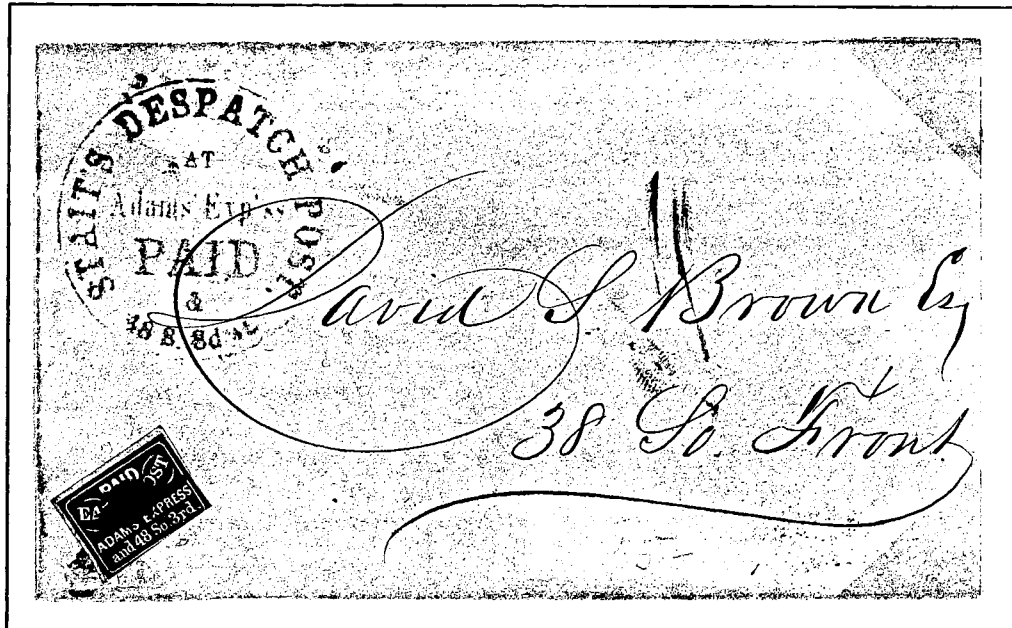 STAIT'S DESPATCH POST.
AT
Adams Exp'ss
PAID
&
48 S. 3d St.
David S. Brown Esq
38 So. Front
PAID
EA POST
ADAMS EXPRESS
and 48 So. 3rd.